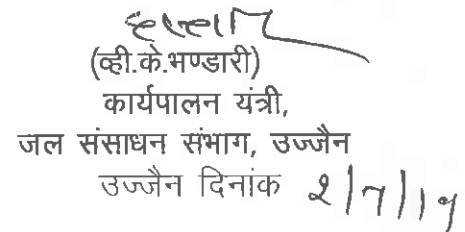 (व्ही.के.भण्डारी)
कार्यपालन यंत्री,
जल संसाधन संभाग, उज्जैन
उज्जैन दिनांक २/7/19